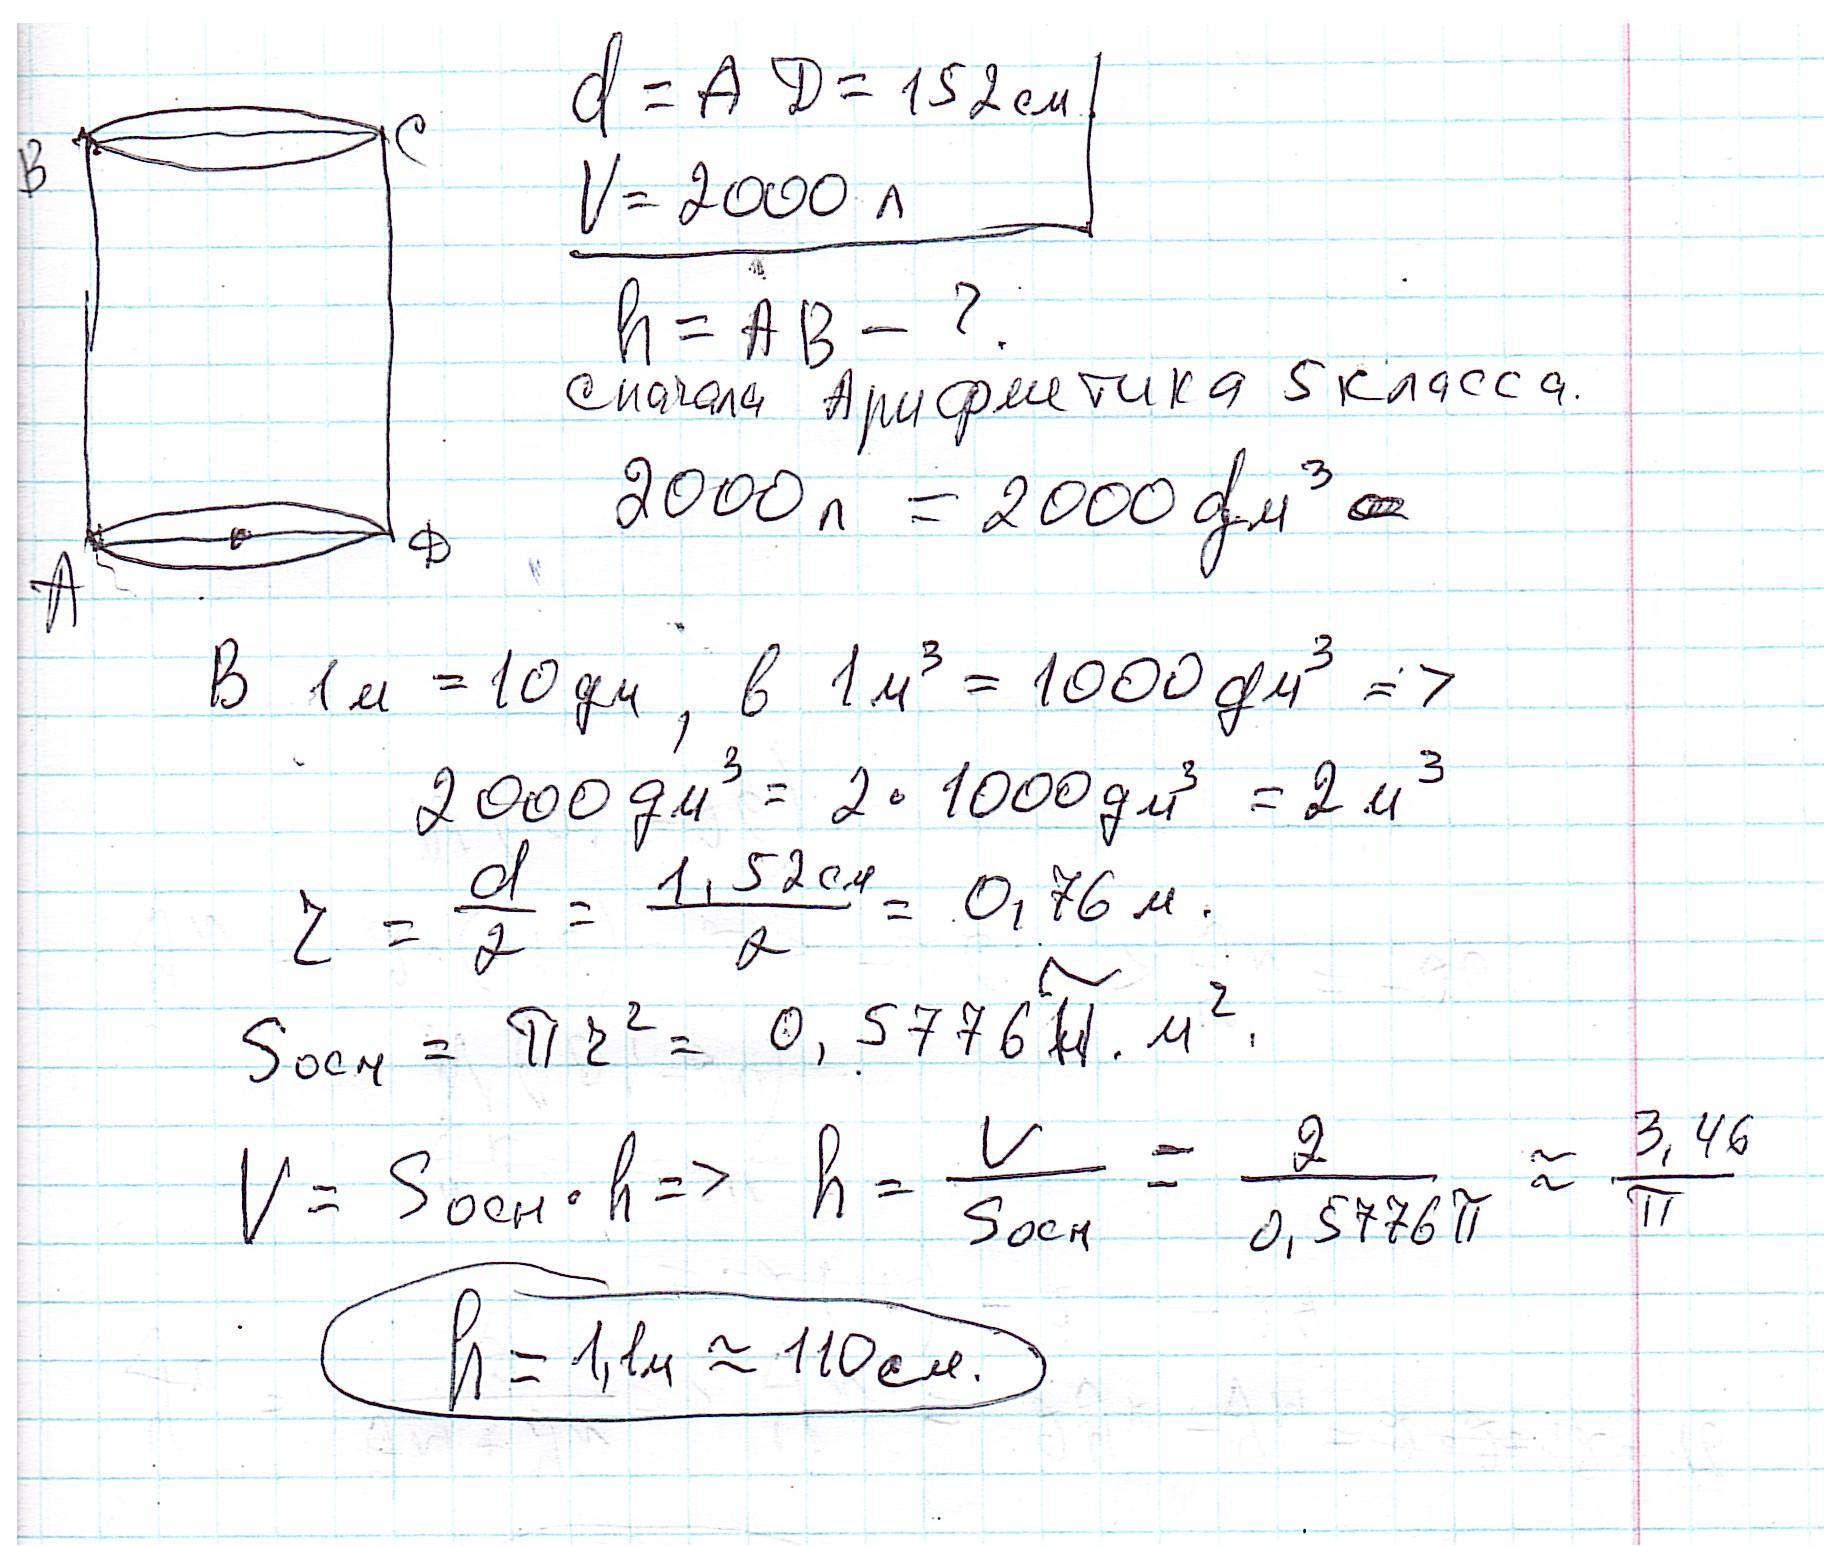 B
C
A
D
d = AD = 152 см
V = 2000 л
h = AB – ?.
Сначала Арифметика 5 класса.
2000 л = 2000 дм³
В 1 м = 10 дм, в 1 м³ = 1000 дм³ =>
2000 дм³ = 2 · 1000 дм³ = 2 м³
r = d/2 = 1,52 см/2 = 0,76 м.
Sосн = πr² = 0,5776 π. м².
V = Sосн · h => h = V/Sосн = 2/0,5776π ≈ 3,46/π
h = 1,1 м ≈ 110 см.